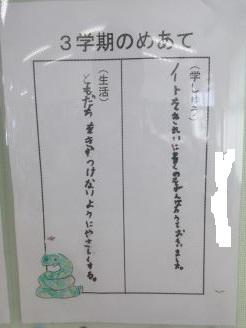 3学期のめあて
(学しゅう)
ノートをきれいに書くのをがんばろうとおもいました。
(生活)
ともだちをきずつけないようにやさしくする。